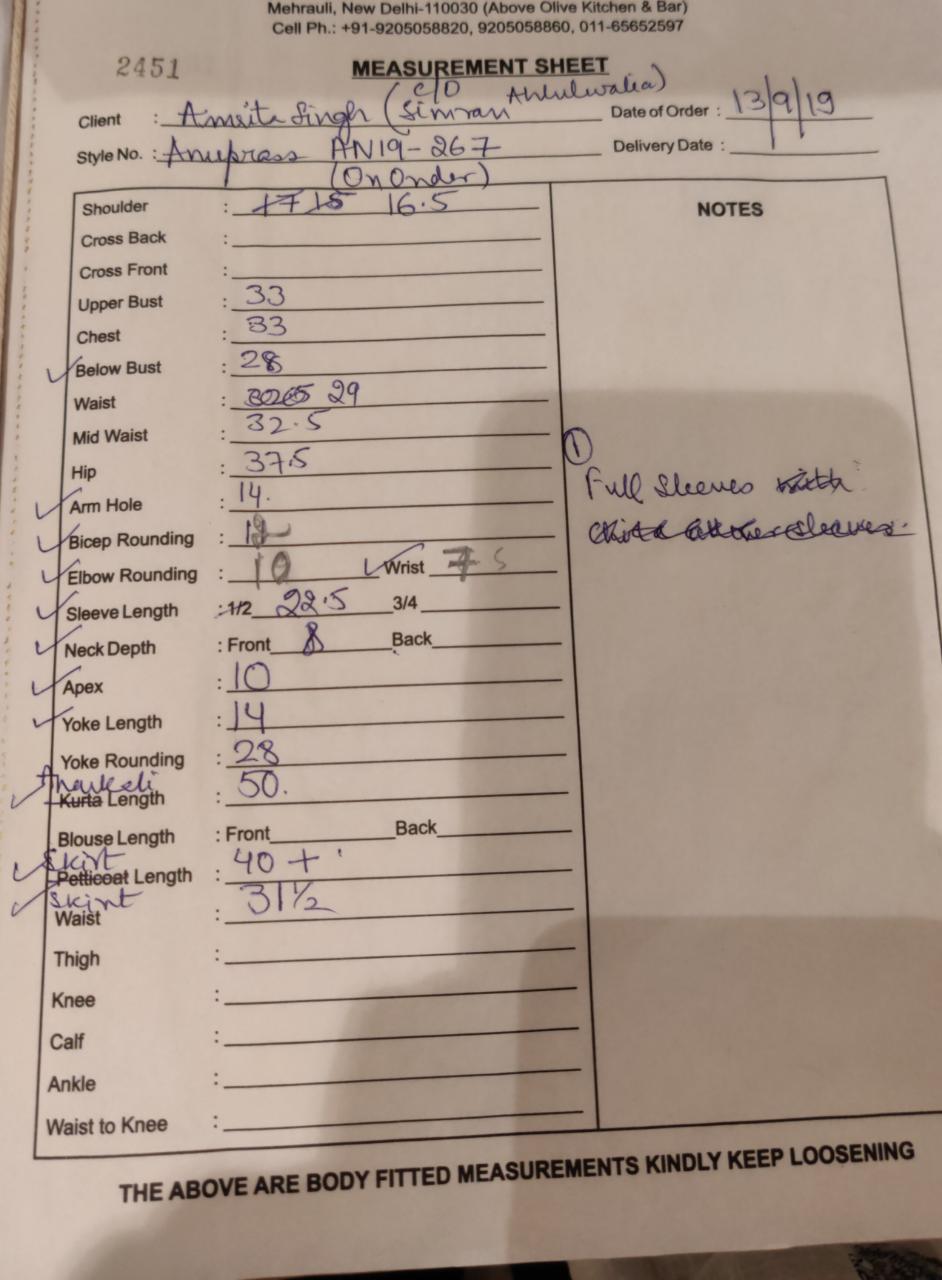 Mehrauli, New Delhi-110030 (Above Olive Kitchen & Bar)
Cell Ph.: +91-9205058820, 9205058860, 011-65652597
2451
MEASUREMENT SHEET
Client : Amrita Singh (c/o Simran Ahluwalia)
Date of Order : 13/9/19
Style No. : Anuprass AN19-267
Delivery Date :
(On Order)
Shoulder : 17 15 16.5
NOTES
Cross Back :
Cross Front :
Upper Bust : 33
Chest : 33
Below Bust : 28
Waist : 29
Mid Waist : 32.5
Hip : 37.5
①
Arm Hole : 14.
Full Sleeves with
Bicep Rounding : 12
Elbow Rounding : 10 Wrist 7 5
Sleeve Length : 1/2 22.5 3/4
Neck Depth : Front 8 Back
Apex : 10
Yoke Length : 14
Yoke Rounding : 28
Anarkali
Kurta Length : 50.
Blouse Length : Front Back
Skirt
Petticoat Length : 40 +
Skirt
Waist : 31½
Thigh :
Knee :
Calf :
Ankle :
Waist to Knee :
THE ABOVE ARE BODY FITTED MEASUREMENTS KINDLY KEEP LOOSENING